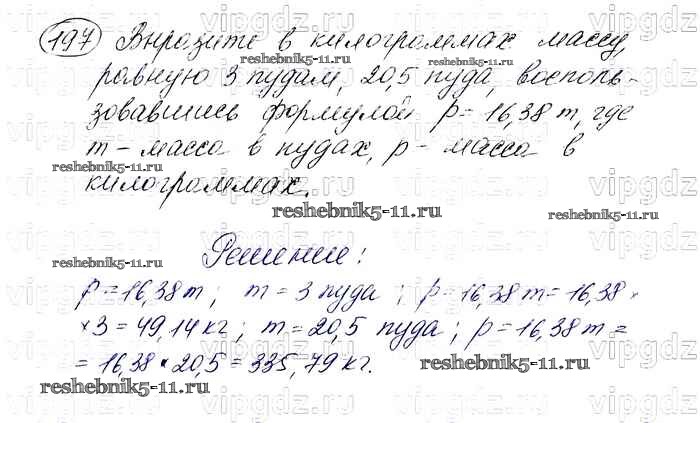 197 Выразите в килограммах массу,
равную 3 пудам, 20,5 пуда, восполь-
зовавшись формулой p = 16,38 m, где
m - масса в пудах, p - масса в
килограммах.
Решение:
p = 16,38 m; m = 3 пуда; p = 16,38 m = 16,38 ×
× 3 = 49,14 кг; m = 20,5 пуда; p = 16,38 m =
= 16,38 • 20,5 = 335,79 кг.
reshebnik5-11.ru
reshebnik5-11.ru
reshebnik5-11.ru
reshebnik5-11.ru
reshebnik5-11.ru
reshebnik5-11.ru
reshebnik5-11.ru
reshebnik5-11.ru
vipgdz